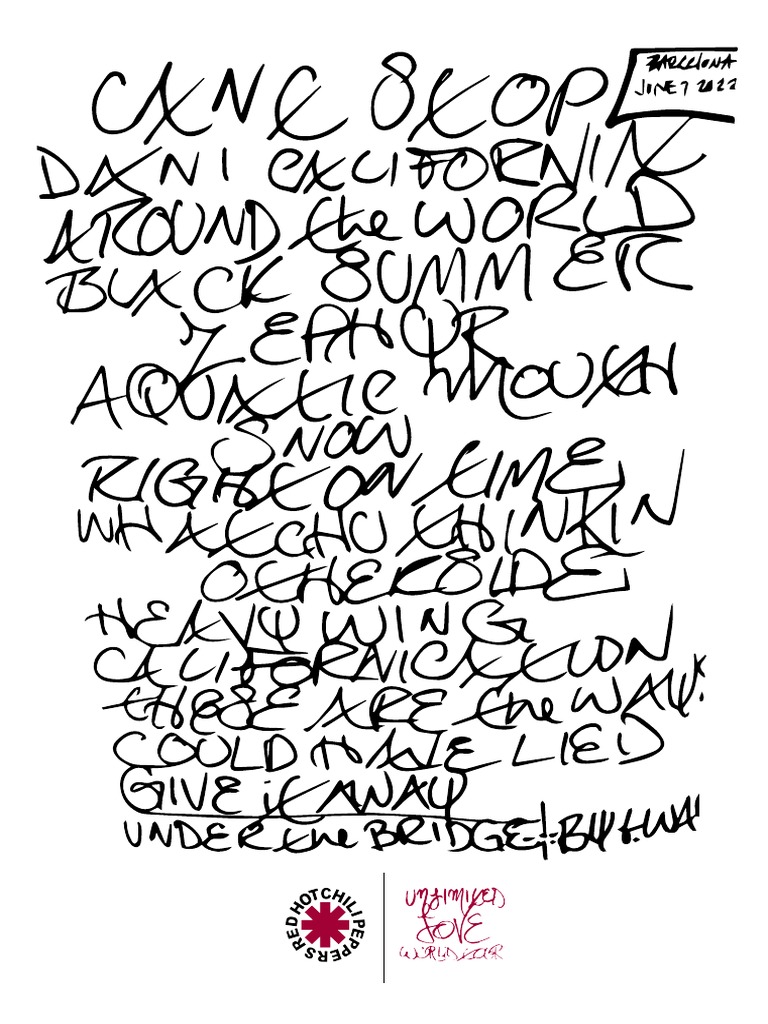 CAN'T STOP
BARCELONA
JUNE 7 2022
DANI CALIFORNIA
AROUND the WORLD
BLACK SUMMER
ZEPHYR
AQUATIC MOUTH
SNOW
RIGHT ON TIME
WHATCHU THINKIN
OTHERSIDE
HEAVY WING
CALIFORNICATION
THESE ARE the WAYS
COULD HAVE LIED
GIVE it AWAY
UNDER the BRIDGE + BY t. WAY
RED HOT CHILI PEPPERS
UNLIMITED
LOVE
WORLD TOUR